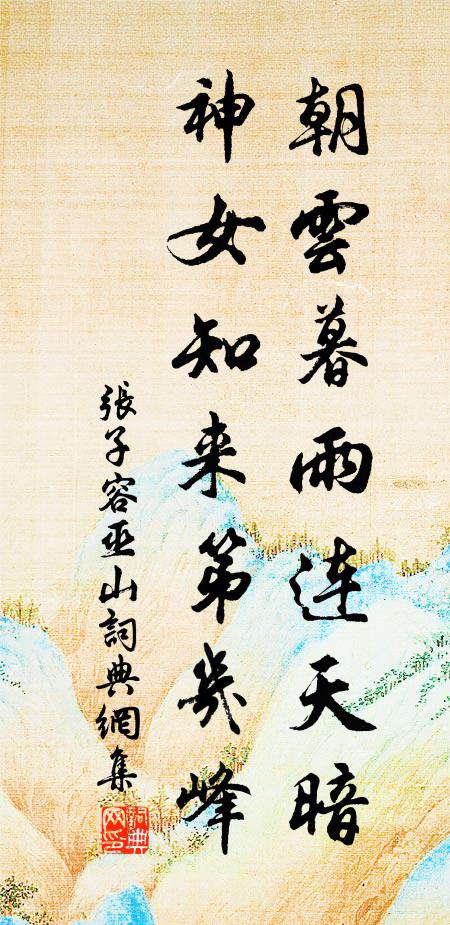 朝雲暮雨连天暗
神女知来第幾峰
張子容巫山詞典網集
詞典網印